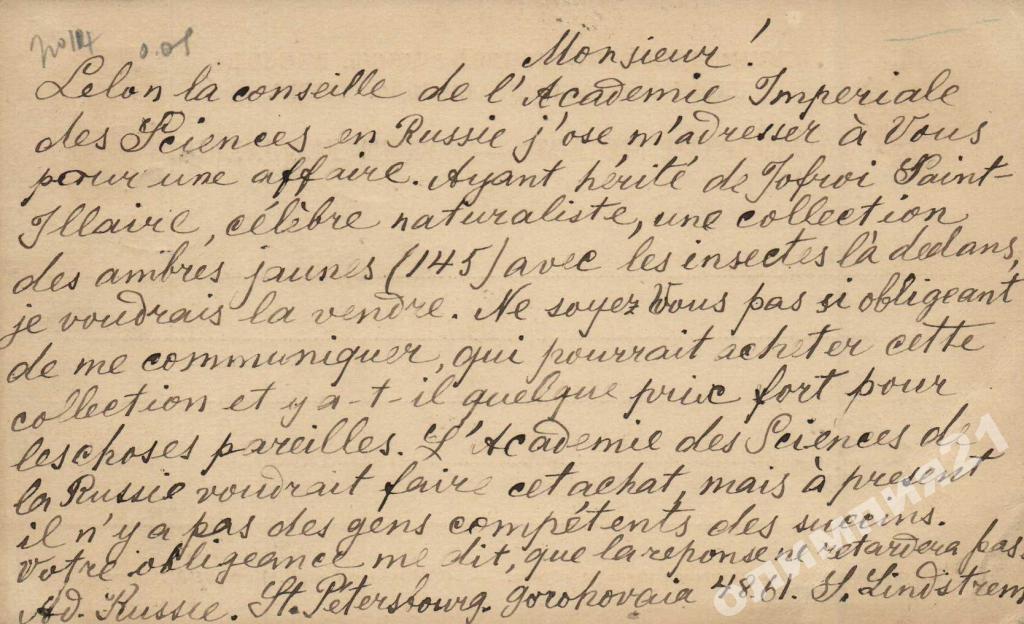 No 14 0.05
Monsieur!
Selon la conseille de l'Academie Imperiale
des Sciences en Russie j'ose m'adresser à Vous
pour une affaire. Ayant hérité de Jofroi Saint-
Illaire, célèbre naturaliste, une collection
des ambres jaunes (145) avec les insectes là dedans,
je voudrais la vendre. Ne soyez Vous pas si obligeant
de me communiquer, qui pourrait acheter cette
collection et y a-t-il quelque prix fort pour
les choses pareilles. L'Academie des Sciences de
la Russie voudrait faire cet achat, mais à present
il n'y a pas des gens compétents des succins.
Votre obligeance me dit, que la reponse ne retardera pas.
Ad. Russie. St. Pétersbourg. Gorohovaia 48.61. S. Lindstrem
олимпия21